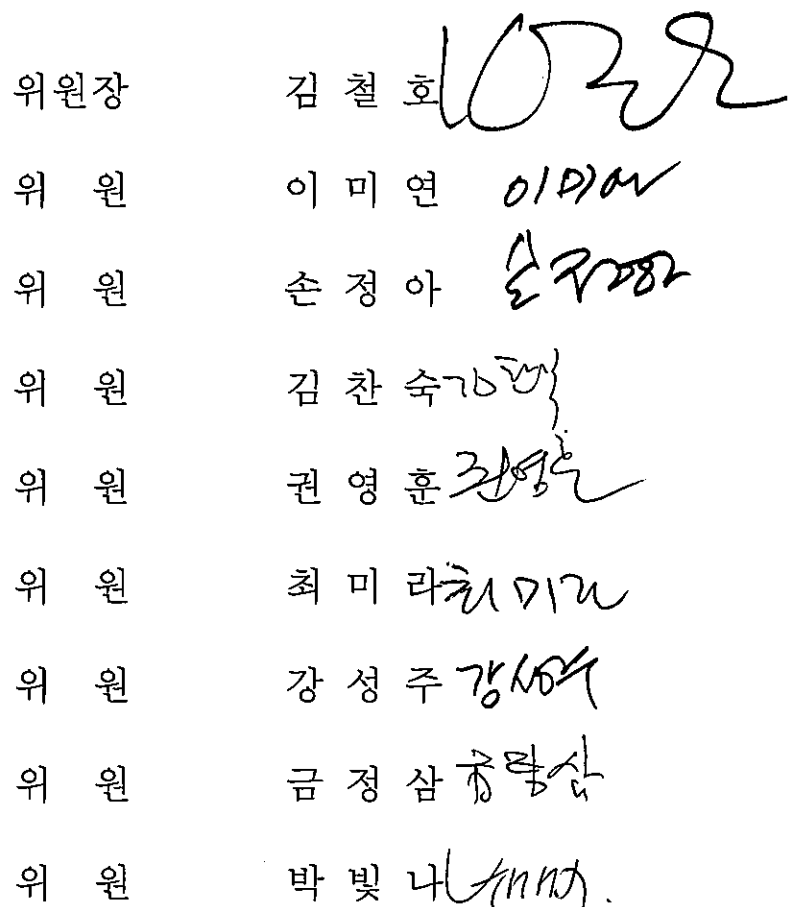 위원장 김 철 호
위 원 이 미 연 이미연
위 원 손 정 아 손정아
위 원 김 찬 숙
위 원 권 영 훈 권영훈
위 원 최 미 라 최미라
위 원 강 성 주 강성주
위 원 금 정 삼
위 원 박 빛 나